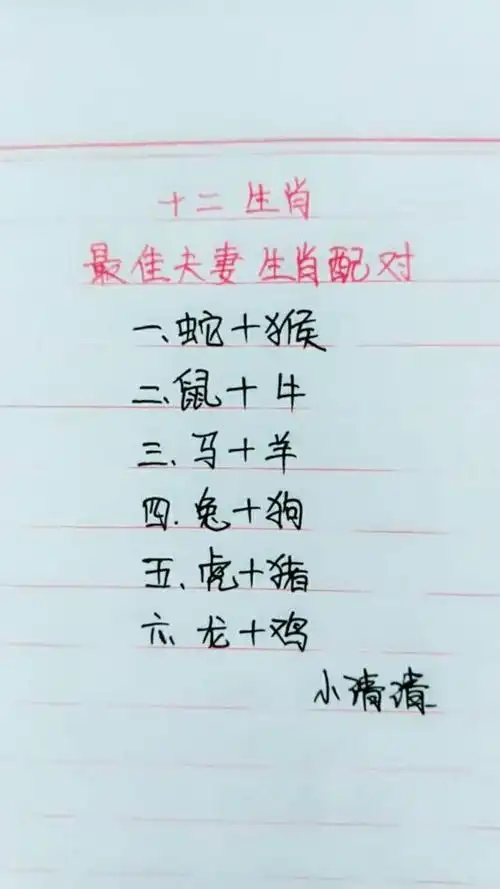 十二生肖
最佳夫妻生肖配对
一、蛇+猴
二、鼠+牛
三、马+羊
四.兔+狗
五、虎+猪
六、龙+鸡
小清清